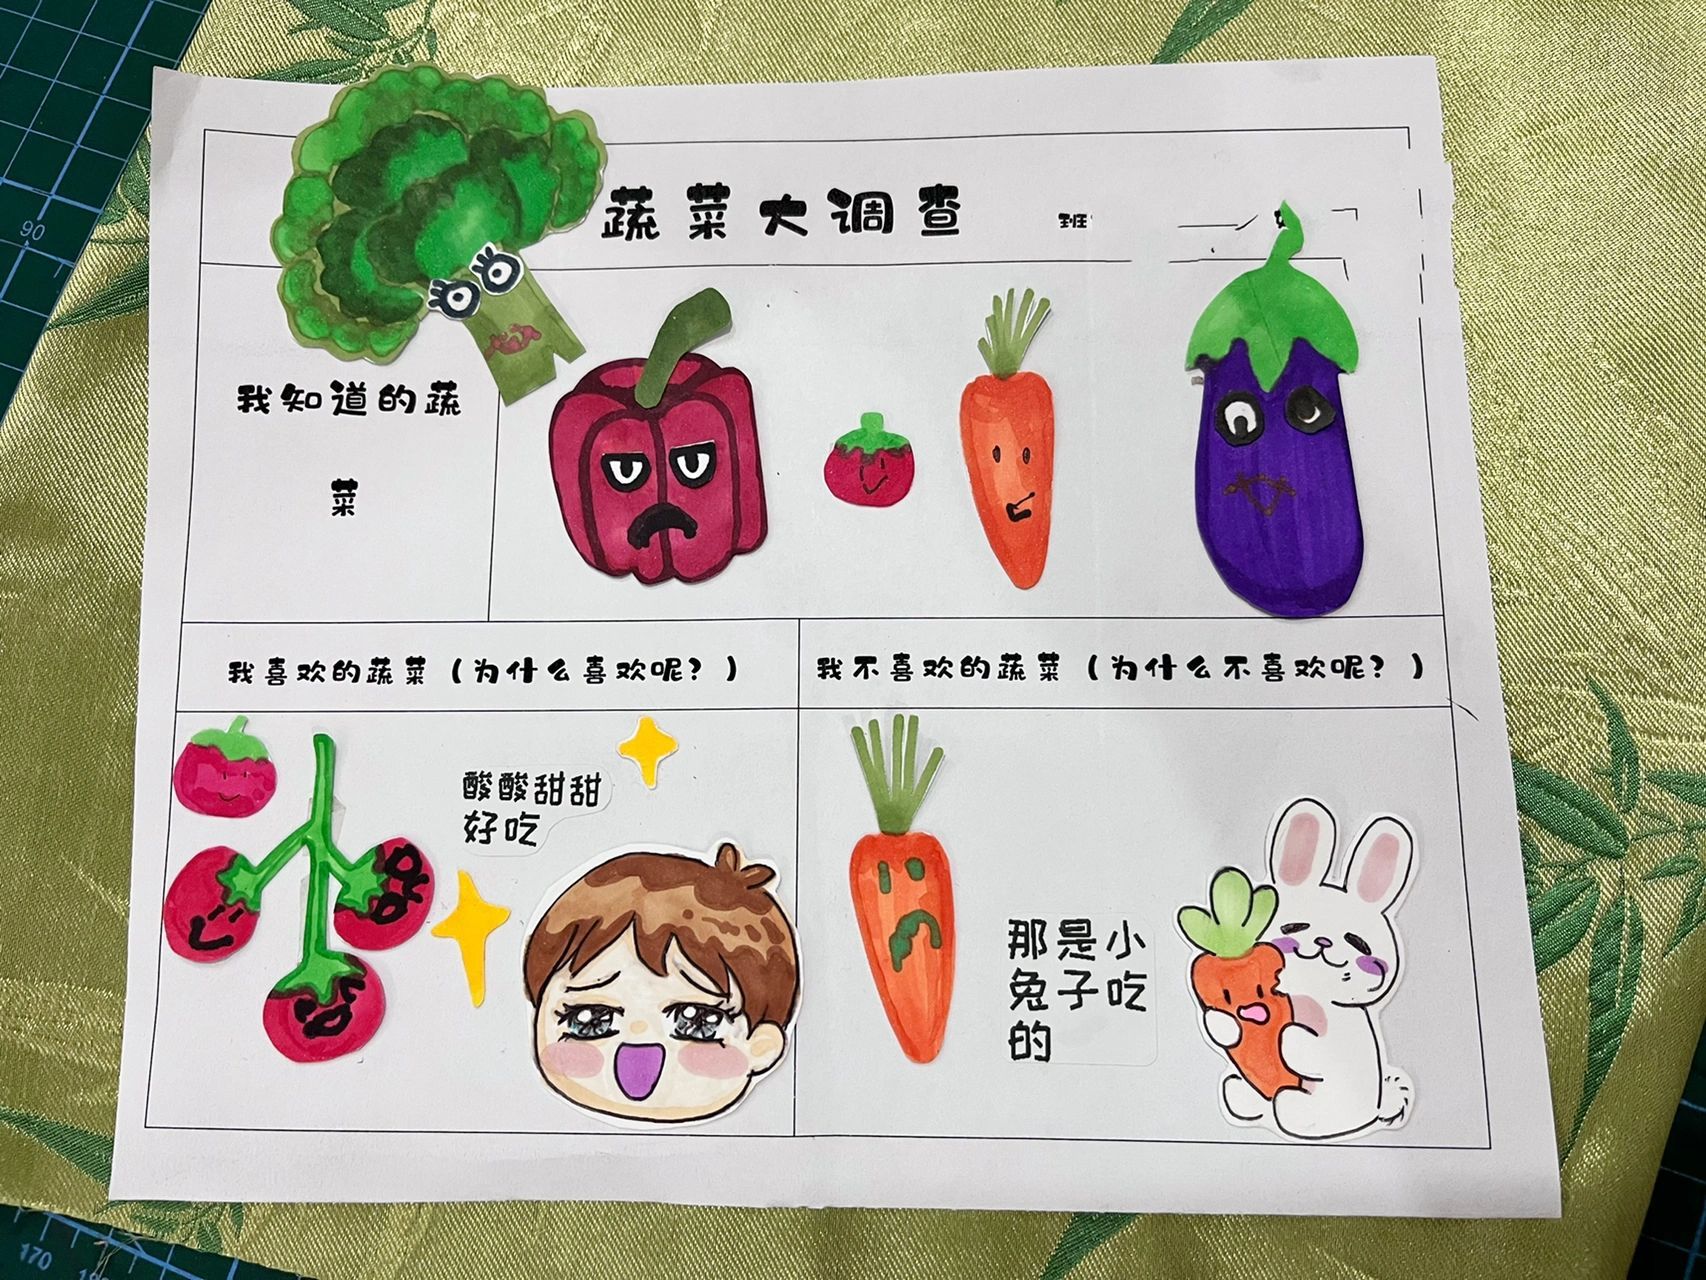 蔬菜大调查 班
我知道的蔬
菜
我喜欢的蔬菜（为什么喜欢呢？）
我不喜欢的蔬菜（为什么不喜欢呢？）
酸酸甜甜
好吃
那是小
兔子吃
的
90
170